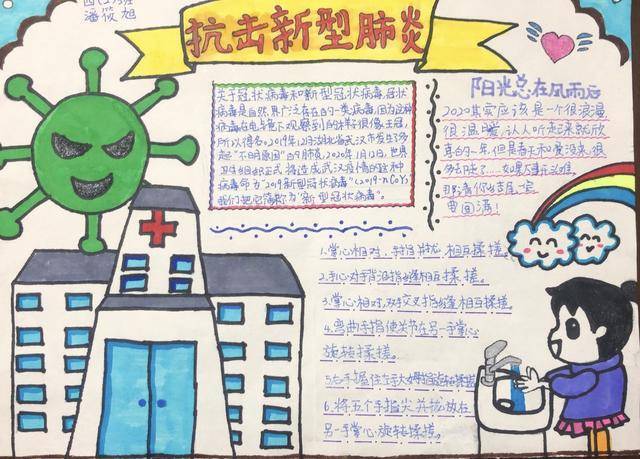 潘筱旭
抗击新型肺炎
关于冠状病毒和新型冠状病毒，冠状
病毒是自然界广泛存在的一类病毒，因为这种
病毒在电镜下观察到的样子很像王冠，
所以得名。2019年12月湖北省武汉市发生了多
起“不明原因”的肺炎，2020年1月12日，世界
卫生组织正式将造成武汉疫情的这种
病毒命为“2019新型冠状病毒”（2019-nCoV）
我们把它简称为“新型冠状病毒”。
阳光总在风雨后
2020其实应该是一个很浪漫
很温暖，让人听起来就欣
喜的一年，但是春天和爱没来，很
1.掌心相对，手指并拢，相互揉搓。
2.手心对手背沿指缝相互揉搓。
3.掌心相对，双手交叉指缝相互揉搓。
4.弯曲手指使关节在另一掌心
旋转揉搓。
5.右手握住左手大拇指旋转揉搓
6.将五个手指尖并拢放在
另一手掌心旋转揉搓。